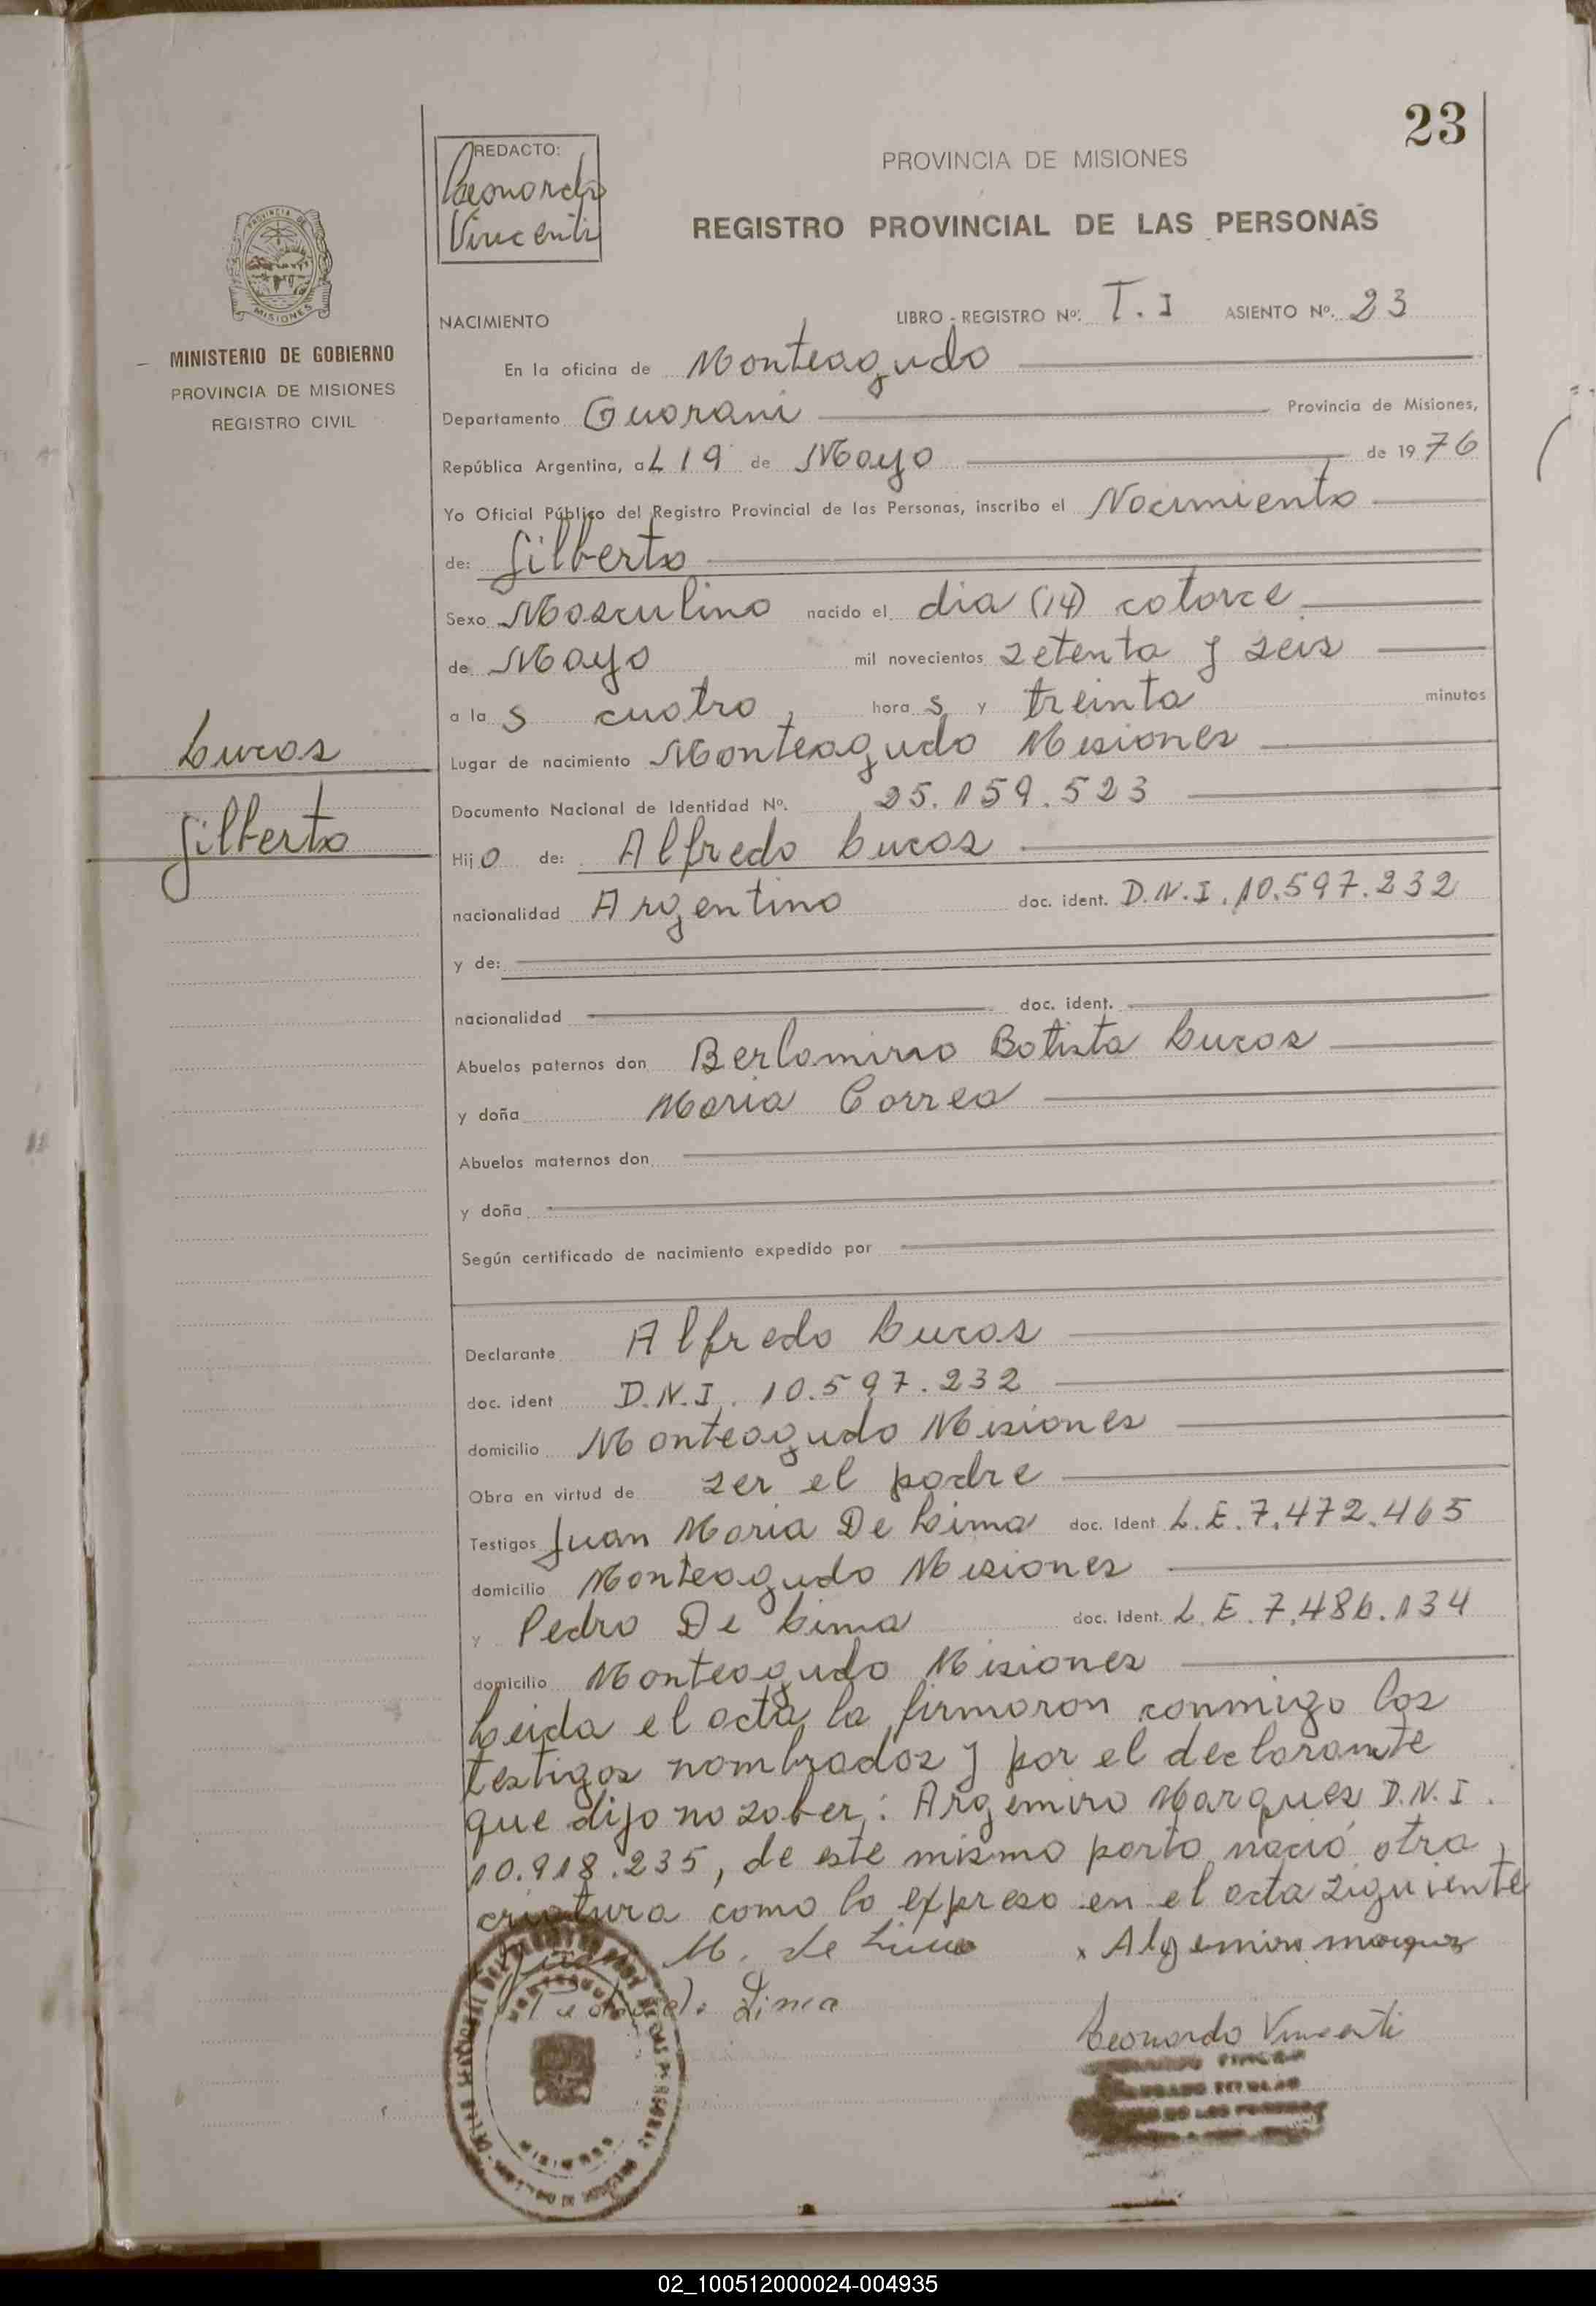 23
REDACTO:
Leonardo
Vincenti
PROVINCIA DE MISIONES
REGISTRO PROVINCIAL DE LAS PERSONAS
PROVINCIA DE
MISIONES
MINISTERIO DE GOBIERNO
PROVINCIA DE MISIONES
REGISTRO CIVIL
NACIMIENTO LIBRO - REGISTRO Nº: T. I ASIENTO Nº. 23
En la oficina de Monteagudo
Departamento Guarani Provincia de Misiones,
República Argentina, aL 19 de Mayo de 1976
Yo Oficial Público del Registro Provincial de las Personas, inscribo el Nacimiento
de: Gilberto
Sexo Masculino nacido el dia (14) catorce
de Mayo mil novecientos setenta y seis
a la s cuatro, hora s y treinta minutos
Lucas
Lugar de nacimiento Monteagudo Misiones
Documento Nacional de Identidad Nº. 25.159.523
Gilberto
Hijo de: Alfredo Lucas
nacionalidad Argentino doc. ident. D.N.I. 10.597.232
y de:
nacionalidad doc. ident.
Abuelos paternos don Berlamirio Batista Lucas
y doña Maria Correa
Abuelos maternos don
y doña
Según certificado de nacimiento expedido por
Declarante Alfredo Lucas
doc. ident D.N.I. 10.597.232
domicilio Monteagudo Misiones
Obra en virtud de ser el padre
Testigos Juan Maria De Lima doc. Ident L.E. 7.472.465
domicilio Monteagudo Misiones
y Pedro De Lima doc. Ident. L.E. 7.486.134
domicilio Monteagudo Misiones
Leida el acta la firmaron conmigo los
testigos nombrados y por el declarante
que dijo no saber: Argemiro Marques D.N.I.
10.918.235, de este mismo parto nació otra
criatura como lo expreso en el acta siguiente
Juan M. de Lima x Algemiro marques
Pedro de Lima
Leonardo Vincenti
02_100512000024-004935